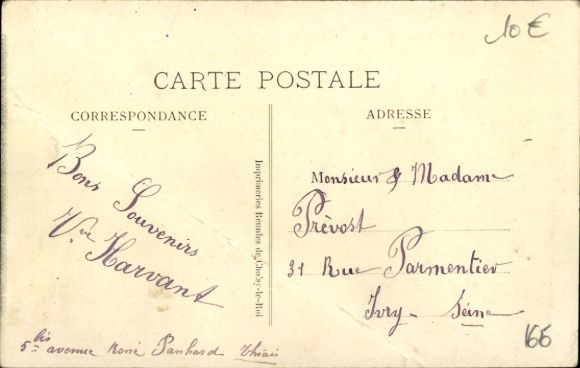 10€
CARTE POSTALE
CORRESPONDANCE
ADRESSE
Bons Souvenirs
Vve Harvant
Imprimeries Réunies de Choisy-le-Roi
Monsieur & Madame
Prévost
31 Rue Parmentier
Ivry - Seine
5 bis avenue René Panhard Thiais
166